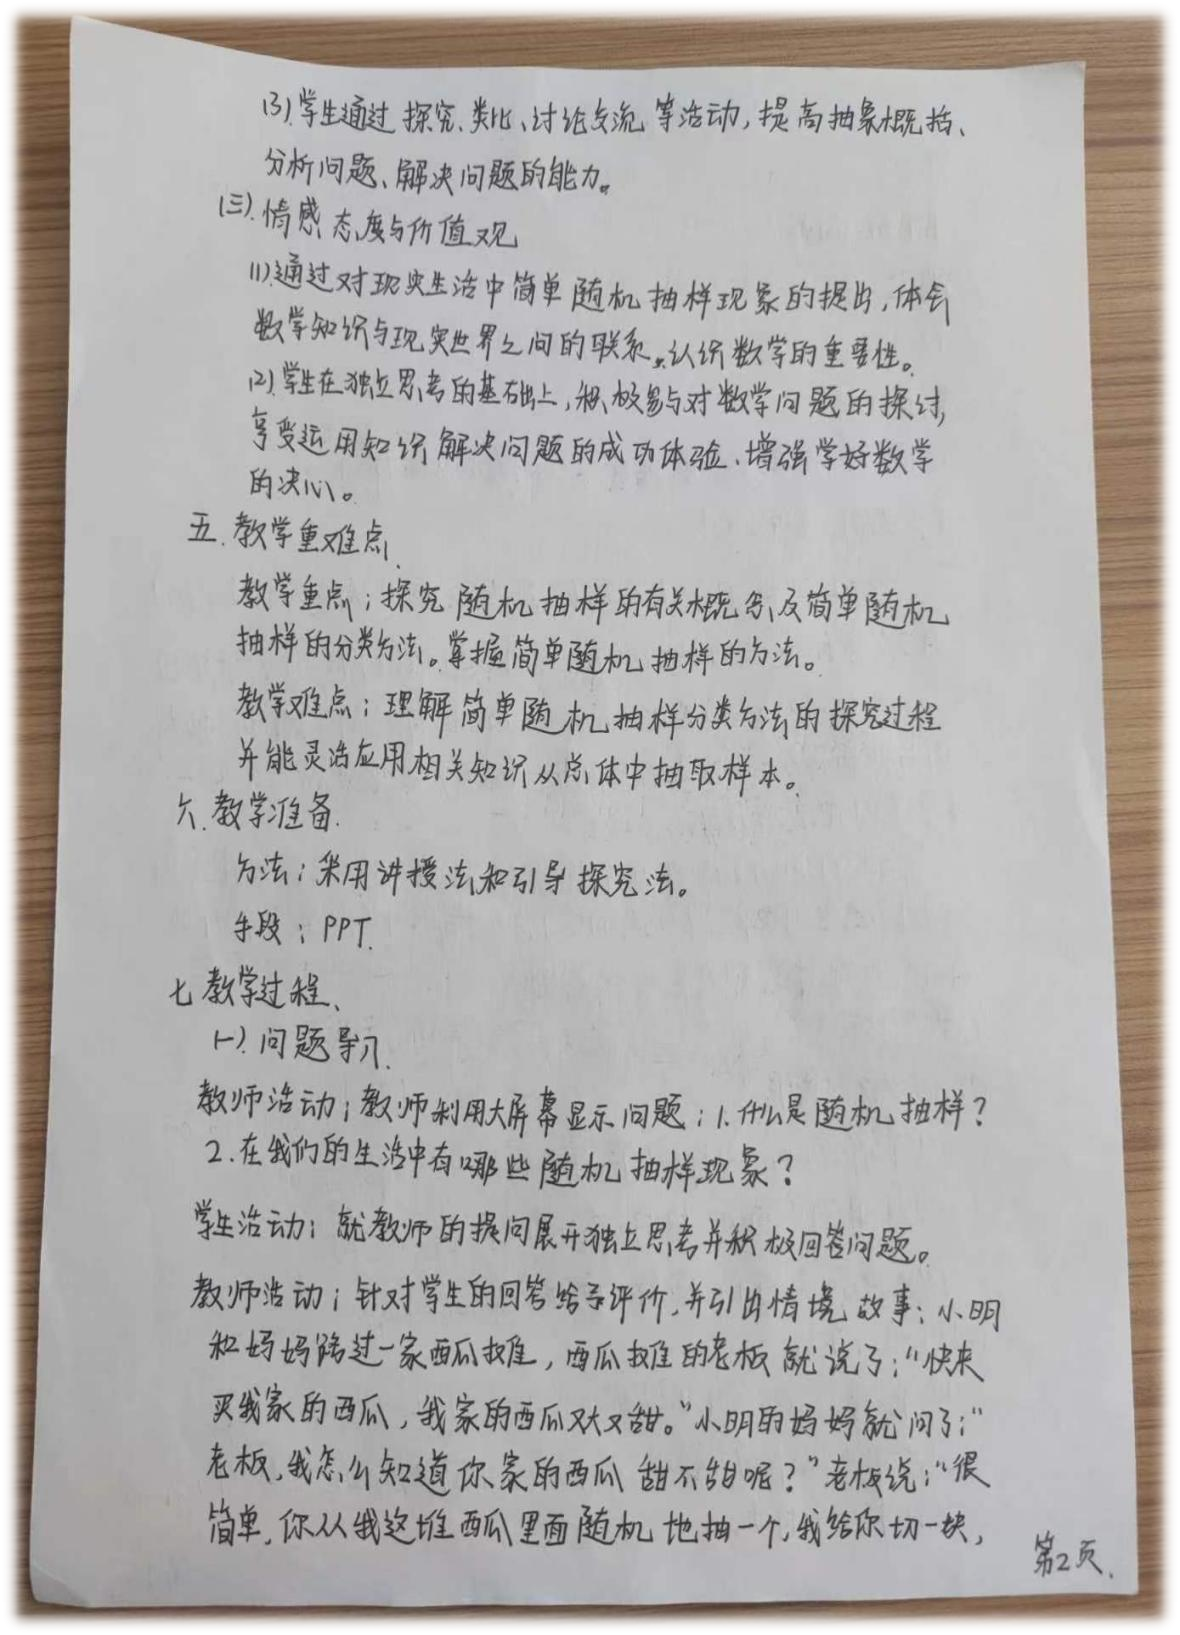 (3).学生通过探究、类比、讨论交流等活动,提高抽象概括、
分析问题、解决问题的能力。
(三).情感态度与价值观
(1).通过对现实生活中简单随机抽样现象的提出,体会
数学知识与现实世界之间的联系。认识数学的重要性。
(2).学生在独立思考的基础上,积极参与对数学问题的探讨,
享受运用知识解决问题的成功体验、增强学好数学
的决心。
五.教学重难点.
教学重点;探究随机抽样的有关概念及简单随机
抽样的分类方法。掌握简单随机抽样的方法。
教学难点;理解简单随机抽样分类方法的探究过程
并能灵活应用相关知识从总体中抽取样本。
六.教学准备.
方法;采用讲授法和引导探究法。
手段:PPT.
七教学过程、
(一).问题导入.
教师活动;教师利用大屏幕显示问题;1.什么是随机抽样?
2.在我们的生活中有哪些随机抽样现象?
学生活动;就教师的提问展开独立思考并积极回答问题。
教师活动;针对学生的回答给予评价,并引出情境故事:小明
和妈妈路过一家西瓜摊,西瓜摊的老板就说了;“快来
买我家的西瓜,我家的西瓜又大又甜。”小明的妈妈就问了;“
老板,我怎么知道你家的西瓜甜不甜呢?”老板说;“很
简单,你从我这堆西瓜里面随机地抽一个,我给你切一块,
第2页.